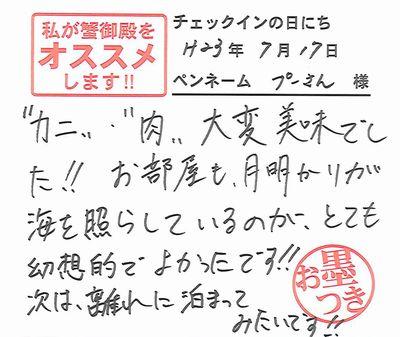 私が蟹御殿を
オススメ
します!!
チェックインの日にち
H23年 7月17日
ペンネーム プーさん 様
"カニ"・"肉"大変美味でし
た!! お部屋も、月明かりが
海を照らしているのが、とても
幻想的でよかったです!!
次は、離れに泊まって
みたいです!!
お墨つき